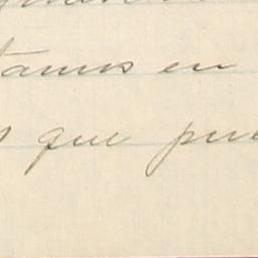 tamos en
s que pue